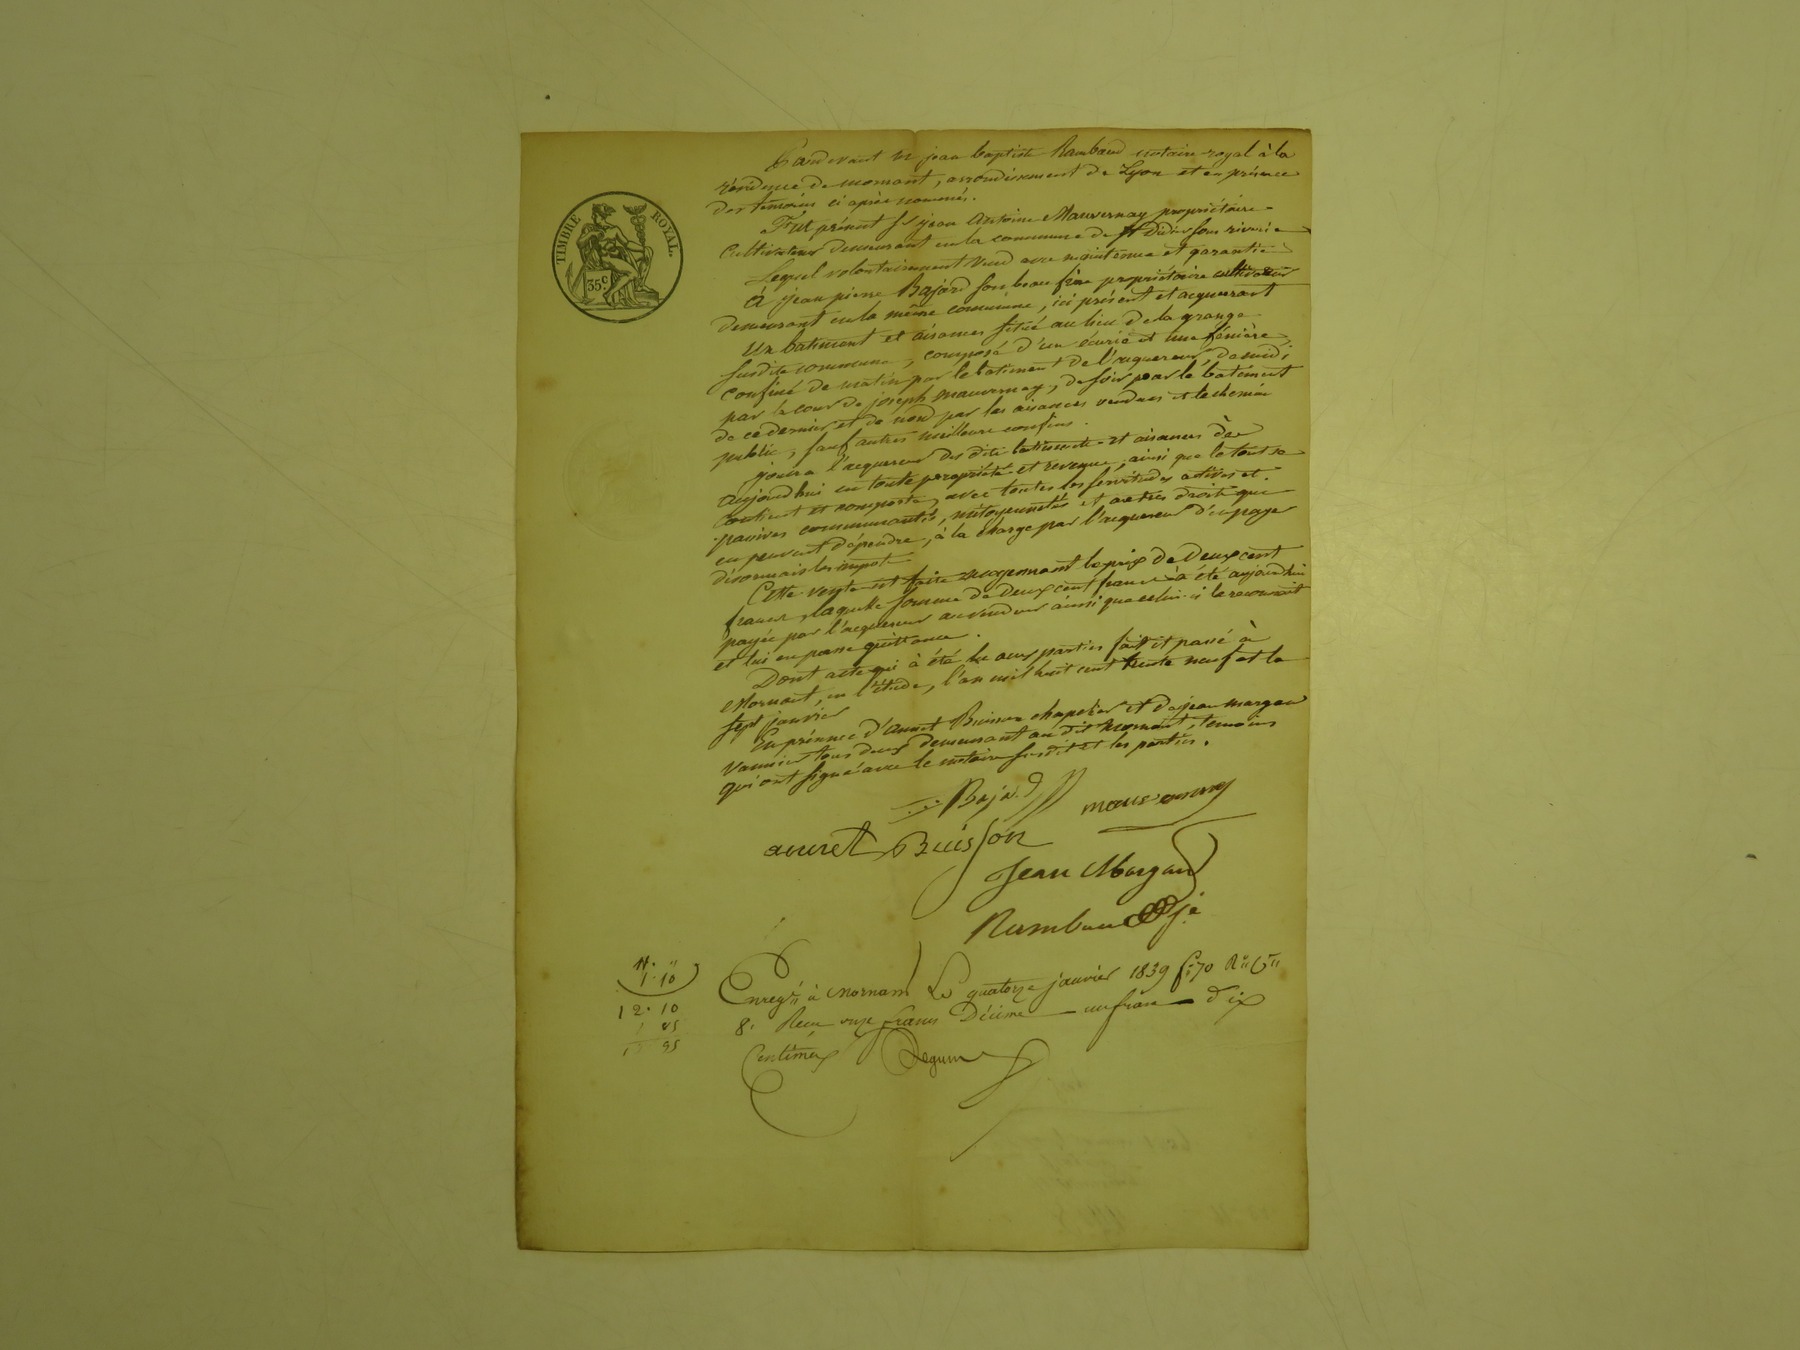 TIMBRE ROYAL
35 c.
Pardevant Me jean baptiste Rambaud notaire royal à la
résidence de mornant, arrondissement de Lyon et en présence
des temoins ci après nommés.
Fut présent Sr jean Antoine Mauvernay propriétaire
Cultivateur demeurant en la commune de St Didier sous riverie
Lequel volontairement vend avec maintenue et garantie
à jean pierre Bajard son beau frère propriétaire cultivateur
demeurant en la même commune, ici présent et acquerant
Un batiment et aisances situé au lieu de la grange
susdite commune, composé d'un écurie et une fénière,
confiné de matin par le batiment de l'acquereur, de midi
par la cour de joseph mauvernay, de soir par le batiment
de ce dernier et de nord par les aisances vendues et le chemin
public, sauf autres meilleurs confins.
jouira l'acquereur des dits batiments et aisances dès
aujourdhui en toute propriété et revenue, ainsi que le tout se
contient et comporte, avec toutes les servitudes actives et
passives communautés, mitoyennetés et autres droits qui
en peuvent dépendre, à la charge par l'acquereur d'en payer
désormais les impots
Cette vente est faite moyennant le prix de Deux cent
francs, laquelle somme de deux cent francs à été aujourdhui
payée par l'acquereur au vendeur ainsi que celui-ci le reconnait
et lui en passe quittance.
Dont acte qui à été lu aux parties fait et passé à
Mornant, en l'étude, l'an mil huit cent trente neuf et le
sept janvier
En présence d'annet Buisson chapelier et de jean margand
vannier tous deux demeurant au dit mornant, temoins
qui ont signé avec le notaire susdit et les parties.
Bajard mauvernay
annet Buisson
Jean Margand
Rambaud
11. "
1. 10
12. 10
Enregé à Mornant Le quatorze janvier 1839 fo 70 Ro Ce
8. Recu onze francs Décime un franc dix
Centimes Degum